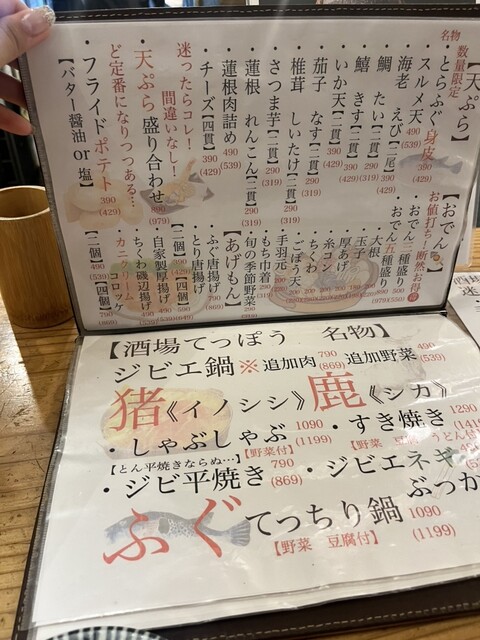 【天ぷら】
名物
数量限定
・とらふぐ身皮 390 (429)
・スルメ天 490 (539)
・海老 えび【二尾】 390 (429)
・鯛 たい【二貫】 390 (429)
・鱚 きす【二貫】 390 (429)
・いか天【二貫】 290 (319)
・茄子 なす【二貫】 290 (319)
・椎茸 しいたけ【二貫】 290 (319)
・さつま芋【二貫】 290 (319)
・蓮根 れんこん【二貫】 290 (319)
・蓮根肉詰め 490 (539)
・チーズ【四貫】 390 (429)
迷ったらコレ!
間違いなし!
・天ぷら盛り合わせ 890 (979)
ど定番になりつつある…
・フライドポテト 390 (429)
【バター醤油 or 塩】
【おでん】
お値打ち!断然お得
・おでん三種盛り
・おでん五種盛り (979)
大根
玉子
厚あげ
糸コン
ちくわ
ごぼう天
手羽元
もち巾着
旬の季節野菜
【あげもん】
・ふぐ唐揚げ
・とり唐揚げ
【二個】 390 (429) 【四個】
・自家製厚揚げ 490
・ちくわ磯辺揚げ
・カニクリームコロッケ
【二個】 490 (539) 【四個】 790
【酒場てっぽう 名物】
ジビエ鍋 ※追加肉 790 (869) 追加野菜 490 (539)
猪《イノシシ》鹿《シカ》
・しゃぶしゃぶ 1090 (1199) 【野菜付】
・すき焼き 1290
【とん平焼きならぬ…】
・ジビ平焼き 790 (869)
・ジビエネギ
ぶっか
ふぐ てっちり鍋 1090 (1199)
【野菜 豆腐付】